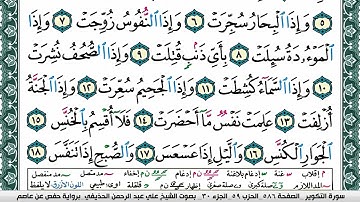 ٥ وَإِذَا ٱلْبِحَارُ سُجِّرَتْ ٦ وَإِذَا ٱلنُّفُوسُ زُوِّجَتْ ٧ وَإِذَا
ٱلْمَوْءُۥدَةُ سُئِلَتْ ٨ بِأَىِّ ذَنۢبٍ قُتِلَتْ ٩ وَإِذَا ٱلصُّحُفُ نُشِرَتْ
١٠ وَإِذَا ٱلسَّمَآءُ كُشِطَتْ ١١ وَإِذَا ٱلْجَحِيمُ سُعِّرَتْ ١٢ وَإِذَا ٱلْجَنَّةُ
أُزْلِفَتْ ١٣ عَلِمَتْ نَفْسٌ مَّآ أَحْضَرَتْ ١٤ فَلَآ أُقْسِمُ بِٱلْخُنَّسِ ١٥
ٱلْجَوَارِ ٱلْكُنَّسِ ١٦ وَٱلَّيْلِ إِذَا عَسْعَسَ ١٧ وَٱلصُّبْحِ إِذَا تَنَفَّسَ ١٨
سورة التكوير الصفحة ٥٨٦ الحزب ٥٩ الجزء ٣٠ بصوت الشيخ علي عبد الرحمن الحذيفي برواية حفص عن عاصم